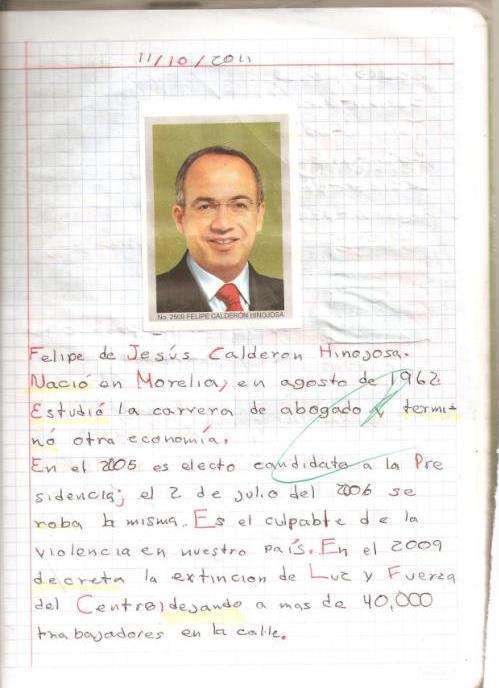 11/10/2011
No. 2509 FELIPE CALDERÓN HINOJOSA
Felipe de Jesús Calderon Hinojosa.
Nació en Morelia, en agosto de 1962.
Estudió la carrera de abogado y termi-
nó otra economía.
En el 2005 es electo candidato a la Pre
sidencia; el 2 de julio del 2006 se
roba la misma. Es el culpable de la
violencia en nuestro país. En el 2009
decreta la extincion de Luz y Fuerza
del Centro, dejando a mas de 40,000
trabajadores en la calle.